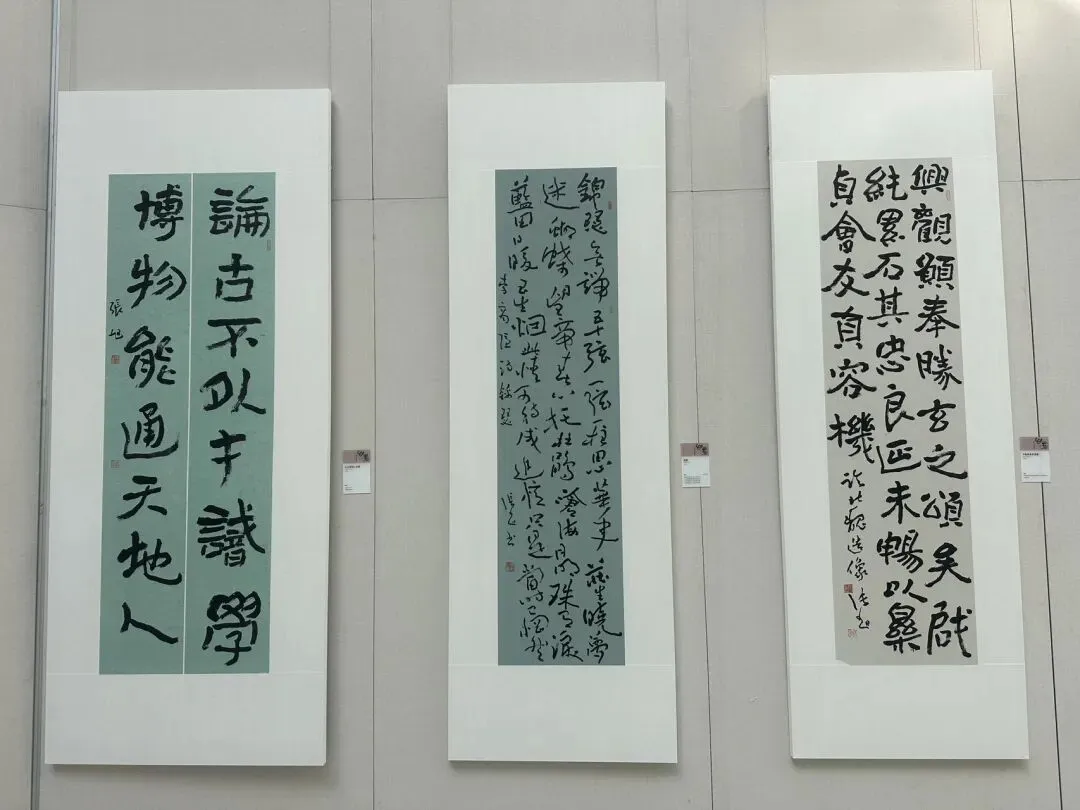 論古不外才識學
博物能通天地人
張旭
錦瑟無端五十弦一弦一柱思華年莊生曉夢
迷蝴蝶望帝春心托杜鵑滄海月明珠有淚
藍田日暖玉生烟此情可待成追憶只是當時已惘然
李商隱詩錦瑟
張旭書
興觀顯奉勝玄之頌矣戲
純累石其忠良未暢以
貞會友貞容機
北魏造像 張旭